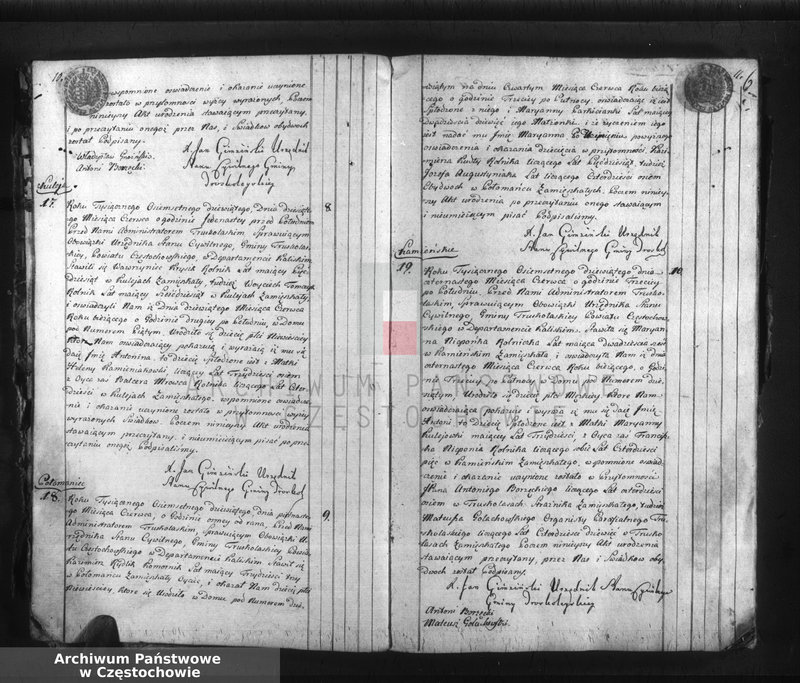 16.
wspomnione oswiadczenie i okazanie uczynione
zostało w przytomności wyżey wyrażonych Poczem
ninieyszy Akt urodzenia stawaiącym przeczytany,
i po przeczytaniu onegoż przez Nas, i Swiadków obydwoch
został Podpisany.
X. Jan Gimziński Urzędnik
Stanu Cywilnego Gminy
Truskolaskiey
Antoni Borzęcki
Kuleje
17.
8
Roku Tysiącznego Osiemsetnego dziewiątego, Dnia dziewiąte-
go Miesiąca Czerwca o godzinie Jedenastey przed Południem
Przed Nami Administratorem Truskolaskim Sprawuiącym
Obowiązki Urzędnika Stanu Cywilnego, Gminy Truskolas-
kiey, Powiatu Częstochowskiego, w Departamencie Kaliskim
Stawił się Wawrzyniec Krysik Rolnik Lat maiący Pięć-
dziesiąt w Kulejach Zamięszkały, tudzież Woyciech Tomczyk
Rolnik Lat maiący Sześcdziesiąt w Kulejach Zamięszkały
i oswiadczyli Nam iż Dnia dziewiątego Miesiąca Czerwca
Roku bieżącego o Godzinie drugiey po Południu w Domu
pod Numerem Piątym, Urodziło się dziecię płci Niewieściey
Nam oswiadczaiący pokazuią i wyrażaią iż mu się
daię Jmię Antonina, to dziecię Spłodzone iest z Matki
Heleny Kamieniakowki liczącey Lat Trzydzieści osiem
z Oyca zaś Balcera Mrowca Rolnika liczącego Lat Czter-
dzieści w Kulejach Zamięszkałego, wspomnione oswiadcze-
nie i okazanie uczynione zostało w przytomności wyżey
wyrażonych Swiadków. Poczem ninieyszy Akt urodzenia
stawaiącym przeczytany, i nieumieiącym pisać po prze-
czytaniu onegoż Podpisaliśmy.
X. Jan Gimziński Urzędnik
Stanu Cywilnego Gminy Truskol
18.
9.
Roku Tysiącznego Osiemsetnego dziewiątego, dnia piętnaste-
go Miesiąca Czerwca, o Godzinie osmey od rana, Przed Nami
Administratorem Truskolaskim Sprawuiącym Obowiązki U-
rzędnika Stanu Cywilnego, Gminy Truskolaskiey Powia-
tu Częstochowskiego w Departamencie Kaliskim Stawił się
Kazimierz Kydlik Komornik Lat maiący Trzydzieści trzy
Zamięszkały Oyciec, i okazał Nam dziecię płci
Niewieściey, które się Urodziło w Domu pod Numerem dzie-
wiątym na dniu Czwartym Miesiąca Czerwca Roku bieżą-
cego o godzinie Trzeciey po Północy, oswiadczaiąc iż iest
Spłodzone z niego i Maryanny Lat maiącey
Dwadzieścia dziewięć iego Małżonki. i iż życzeniem iego
iest nadać mu Jmię Maryanna Po uczynieniu powyższego
oswiadczenia i okazania dziecięcia w przytomności Kazi-
mierza Rolnika liczącego Lat Pięćdziesiąt, tudzież
Jozefa Augustyniaka Lat liczącego Czterdzieści osiem
Obydwoch Zamięszkałych. Poczem niniey-
szy Akt urodzenia po przeczytaniu onego stawaiącym
i nieumieiącym pisać Podpisaliśmy.
X. Jan Gimziński Urzędnik
Stanu Cywilnego Gminy Truskol
Kamieńskie
19.
10.
Roku Tysiącznego Osiemsetnego dziewiątego dnia
czternastego Miesiąca Czerwca, o godzinie Trzeciey
po Południu. Przed Nami Administratorem Trusko-
laskim, Sprawuiącym Obowiązki Urzędnika Stanu
Cywilnego, Gminy Truskolaskiey Powiatu Częstochow-
skiego w Departamencie Kaliskim, Stawiła się Maryan-
na Rolniczka Lat maiąca Dwadzieścia sześć
w Kamieńskim Zamięszkała i oswiadczyła Nam iż dnia
czternastego Miesiąca Czerwca Roku bieżącego, o Godzi-
nie Trzeciey po Północy w Domu pod Numerem dzie-
wiątym, Urodziło się dziecię płci Męskiey, które Nam
oswiadczaiąca pokazuie i wyraża iż mu się daie Jmię
Antoni to dziecię Spłodzone iest z Matki Maryanny
Kulejowki maiącey Lat Trzydzieści z Oyca zaś Francisz-
ka Rolnika liczącego sobie Lat Czterdzieści
pięć w Kamieńskim Zamięszkałego, wspomnione oswiad-
czenie i okazanie uczynione zostało w Przytomności
JPana Antoniego Borzęckiego liczącego Lat czterdzieści
osiem w Truskolasach Zamięszkałego, tudzież
Mateusza Golachowskiego Organisty Parafialnego Tru-
skolaskiego liczącego Lat Czterdzieści dziewięć w Trusko-
lasach Zamięszkałego Poczem ninieyszy Akt urodzenia
stawaiącym przeczytany, przez Nas i Swiadków oby-
dwoch został Podpisany.
X. Jan Gimziński Urzędnik Stanu Cywilnego
Gminy Truskolaskiey
Antoni Borzęcki
Mateusz Golachowski
ARCHIWUM PAŃSTWOWE
CZĘSTOCHOWA
Archiwum Państwowe
w Częstochowie